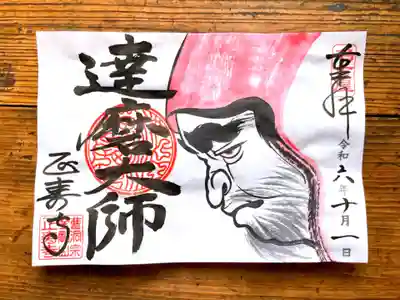 奉拝
令和六年十月一日
達磨大師
正壽寺
曹洞宗